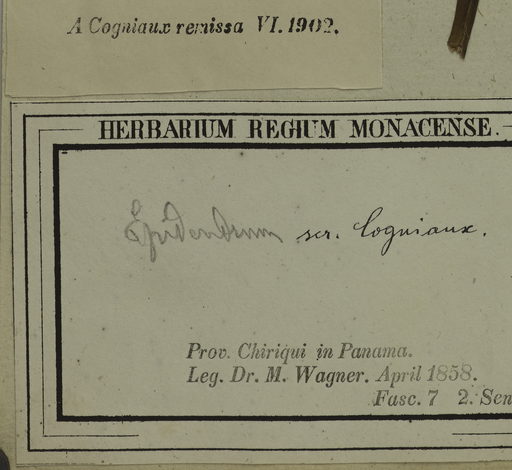 A Cogniaux remissa VI. 1902.
HERBARIUM REGIUM MONACENSE.
Epidendrum scr. Cogniaux.
Prov. Chiriqui in Panama.
Leg. Dr. M. Wagner. April 1858.
Fasc. 7 2. Sen